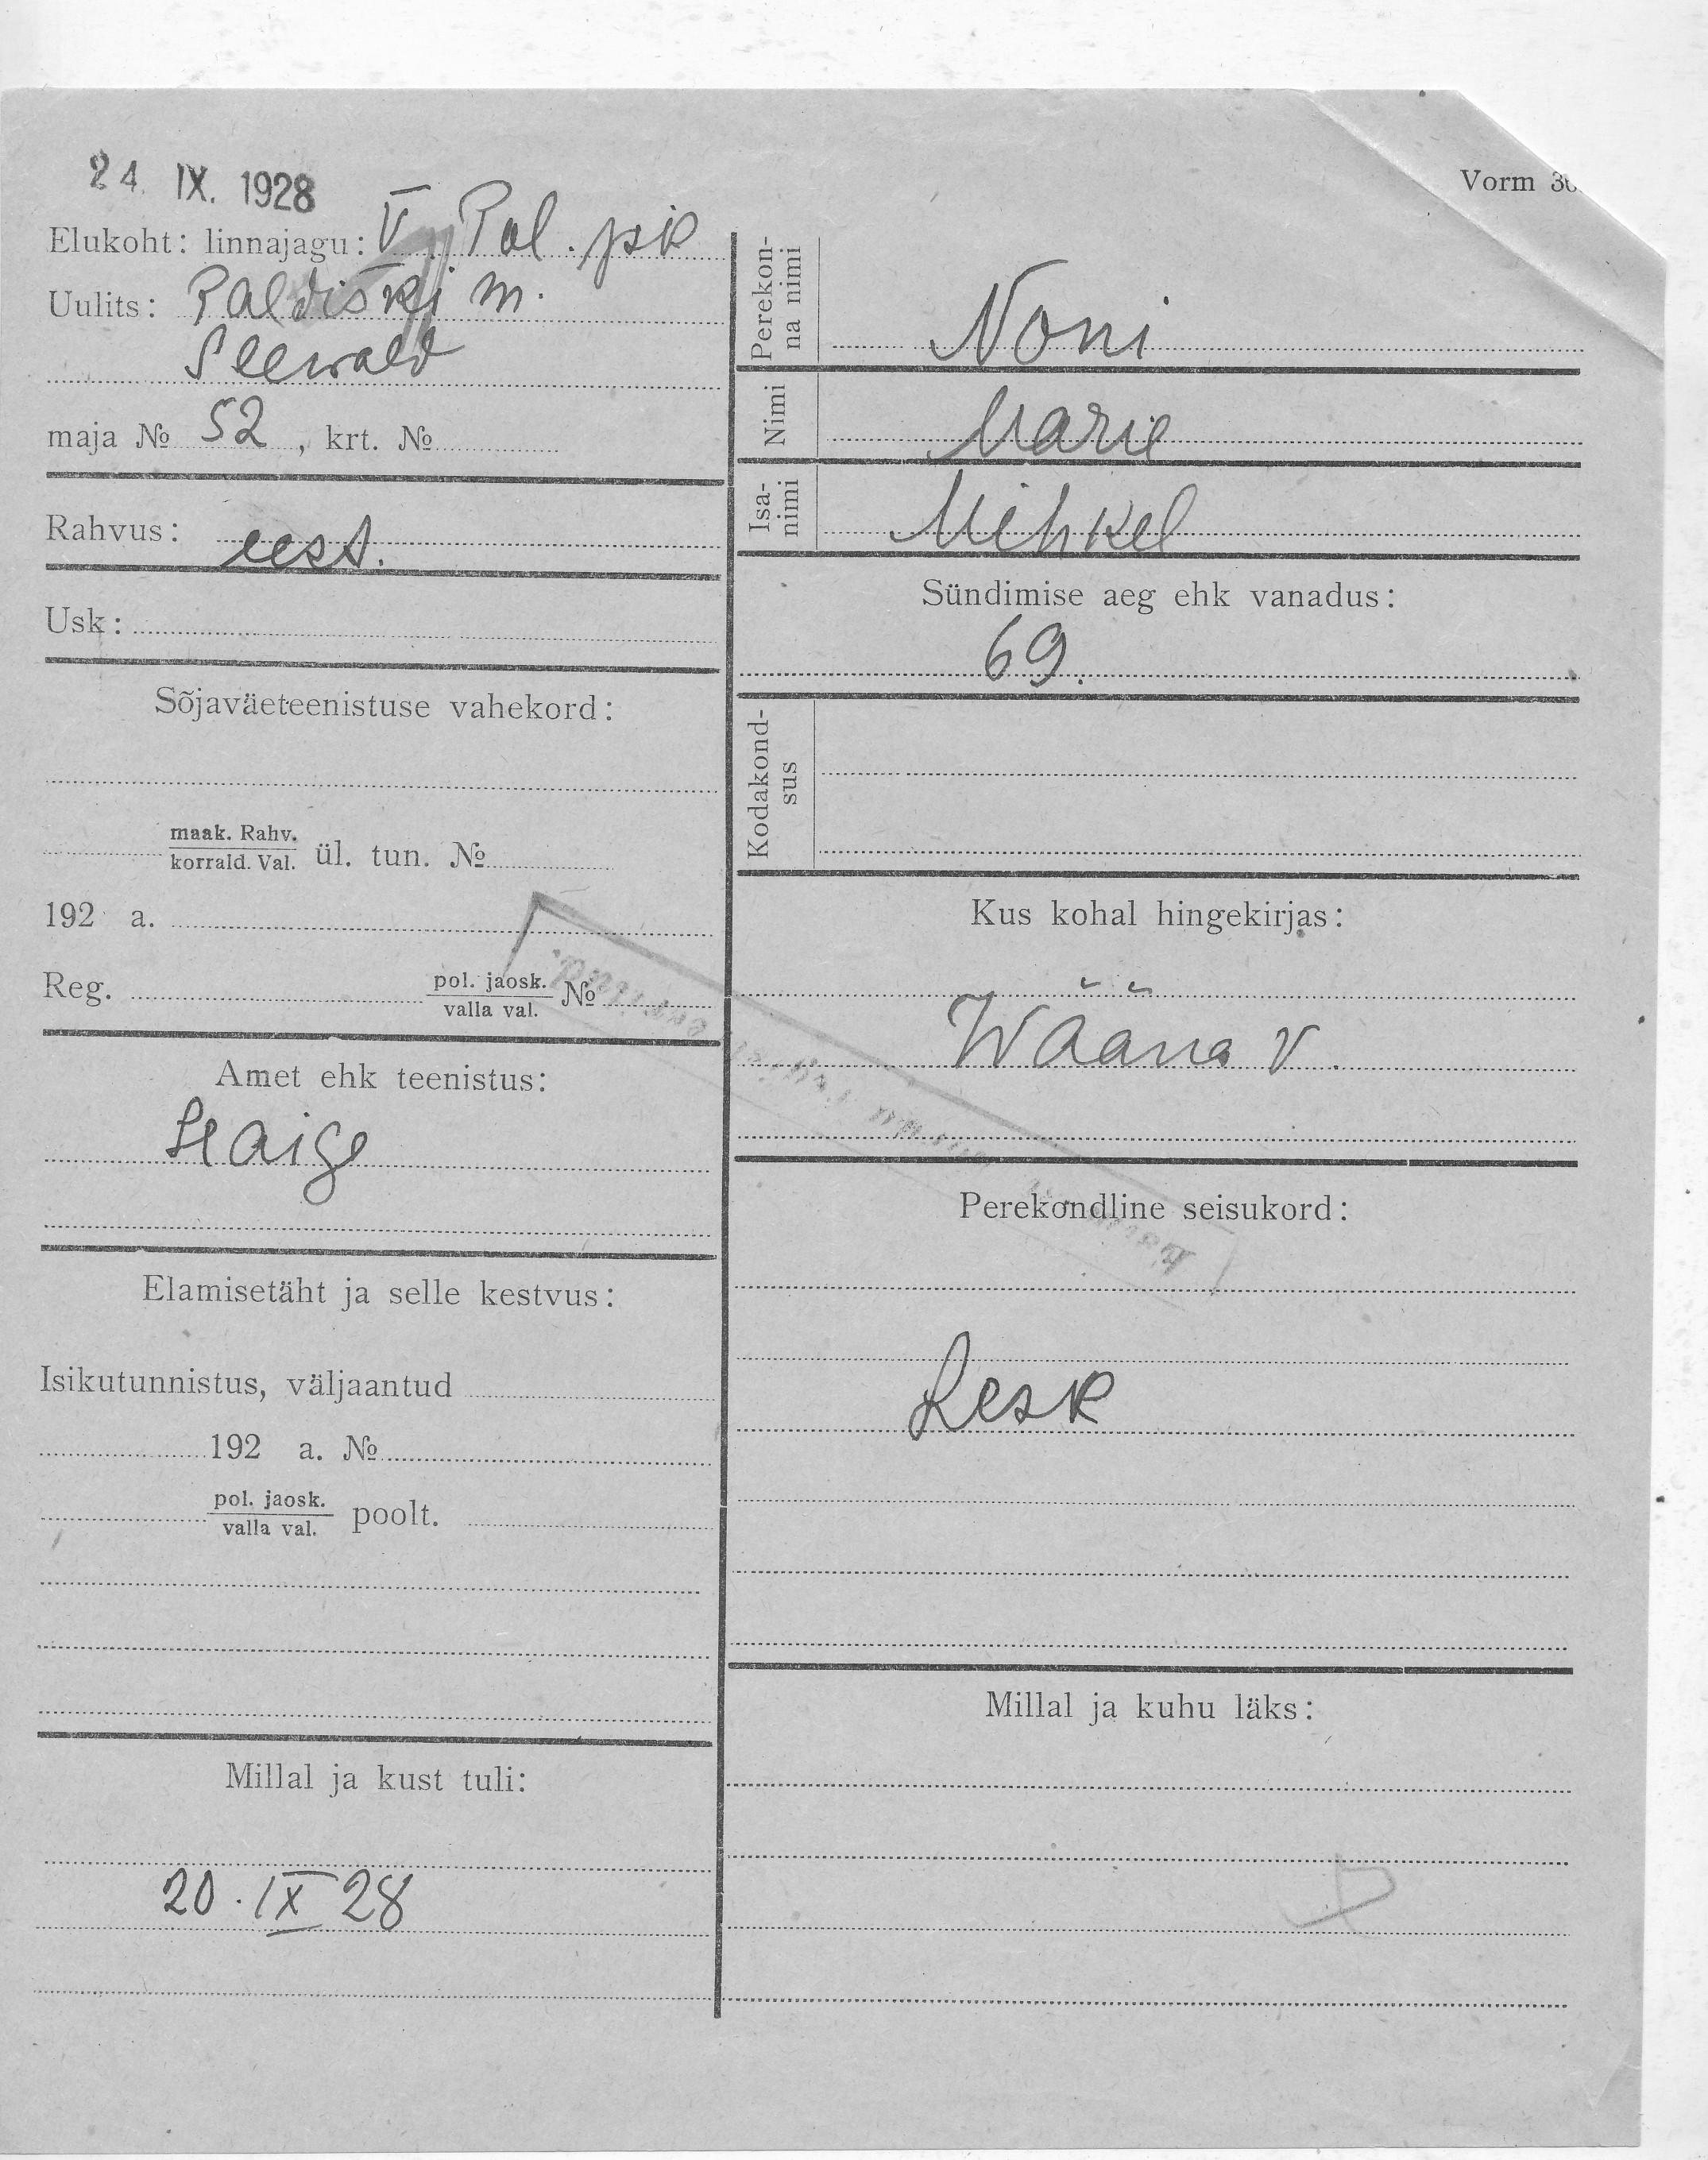 24. IX. 1928
Vorm 36
Elukoht: linnajagu: V Pol. jsk
Uulits: Paldiski m.
Seewald
maja № 52, krt. №
Rahvus: eest.
Usk:
Sõjaväeteenistuse vahekord:
maak. Rahv.
korrald. Val. ül. tun. №
192 a.
Reg. pol. jaosk.
valla val. №
Amet ehk teenistus:
Haige
Elamisetäht ja selle kestvus:
Isikutunnistus, väljaantud
192 a. №
pol. jaosk.
valla val. poolt.
Millal ja kust tuli:
20. IX 28
Perekon-
na nimi
Noni
Nimi
Marie
Isa-
nimi
Mihkel
Sündimise aeg ehk vanadus:
69.
Kodakond-
sus
Kus kohal hingekirjas:
Wääna v.
Perekondline seisukord:
Lesk
Millal ja kuhu läks: